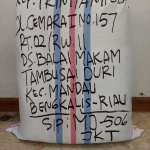 JL.CEMARA I NO.157
RT.02/RW.11
DS.BALAI MAKAM
TAMBUSAI DURI
KEC.MANDAU
BENGKALIS-RIAU
S.P: MJ-506
JKT